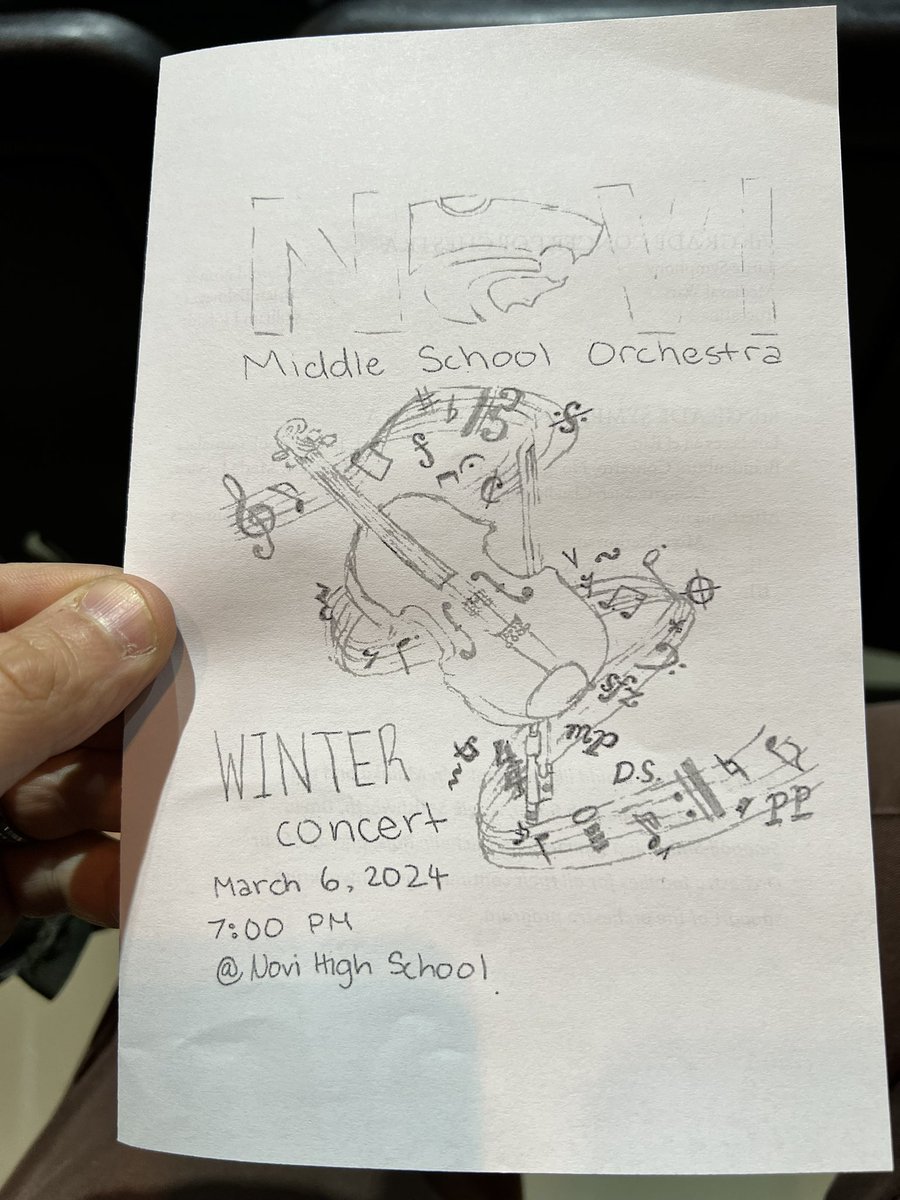 NOVI
Middle School Orchestra
D.S.
pp
WINTER
concert
March 6, 2024
7:00 PM
@ Novi High School